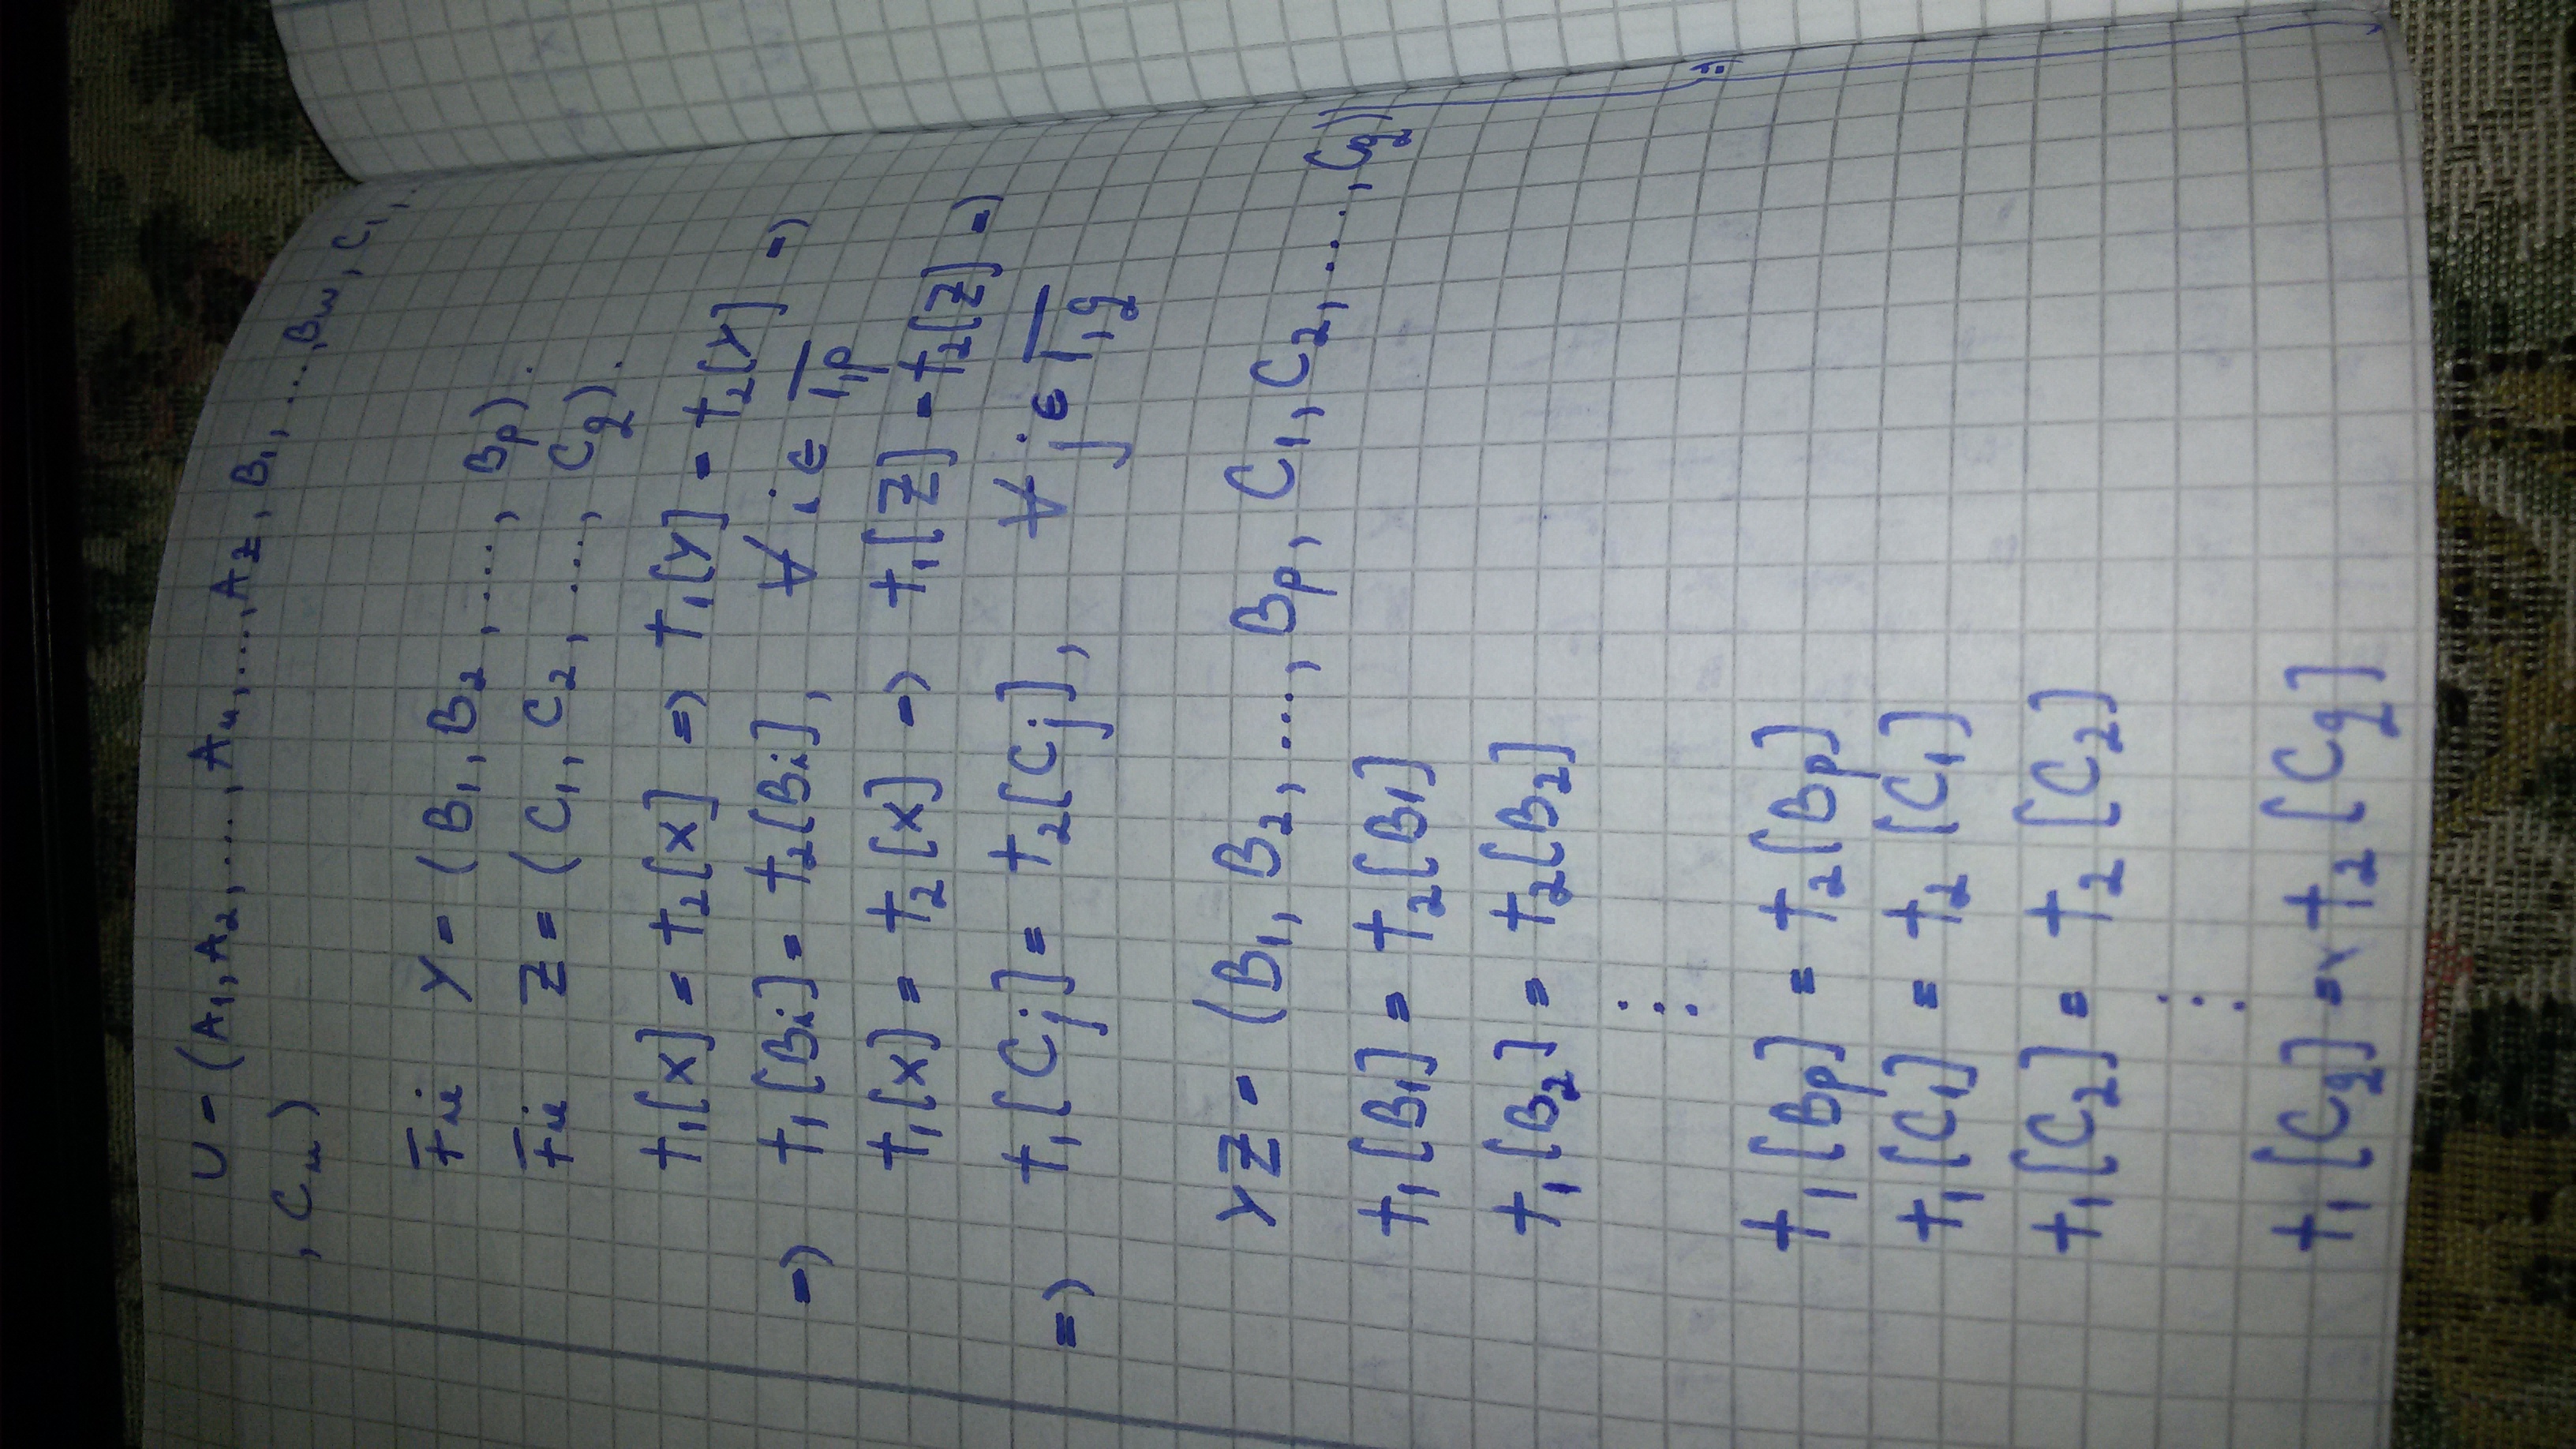 U = (A₁, A₂, ..., Aₙ, ..., A_z, B₁, ..., B_w, C₁, .
, Cᵤ)
Fie Y = (B₁, B₂, ..., Bₚ).
Fie Z = (C₁, C₂, ..., C_q).
t₁[X] = t₂[X] => t₁[Y] = t₂[Y] =>
=> t₁[Bᵢ] = t₂[Bᵢ], ∀ i ∈ 1̅,̅p̅
t₁[X] = t₂[X] => t₁[Z] = t₂[Z] =>
=> t₁[Cⱼ] = t₂[Cⱼ], ∀ j ∈ 1̅,̅q̅
YZ = (B₁, B₂, ..., Bₚ, C₁, C₂, ..., C_q)
t₁[B₁] = t₂[B₁]
t₁[B₂] = t₂[B₂]
⋮
t₁[Bₚ] = t₂[Bₚ]
t₁[C₁] = t₂[C₁]
t₁[C₂] = t₂[C₂]
⋮
t₁[C_q] = t₂[C_q]